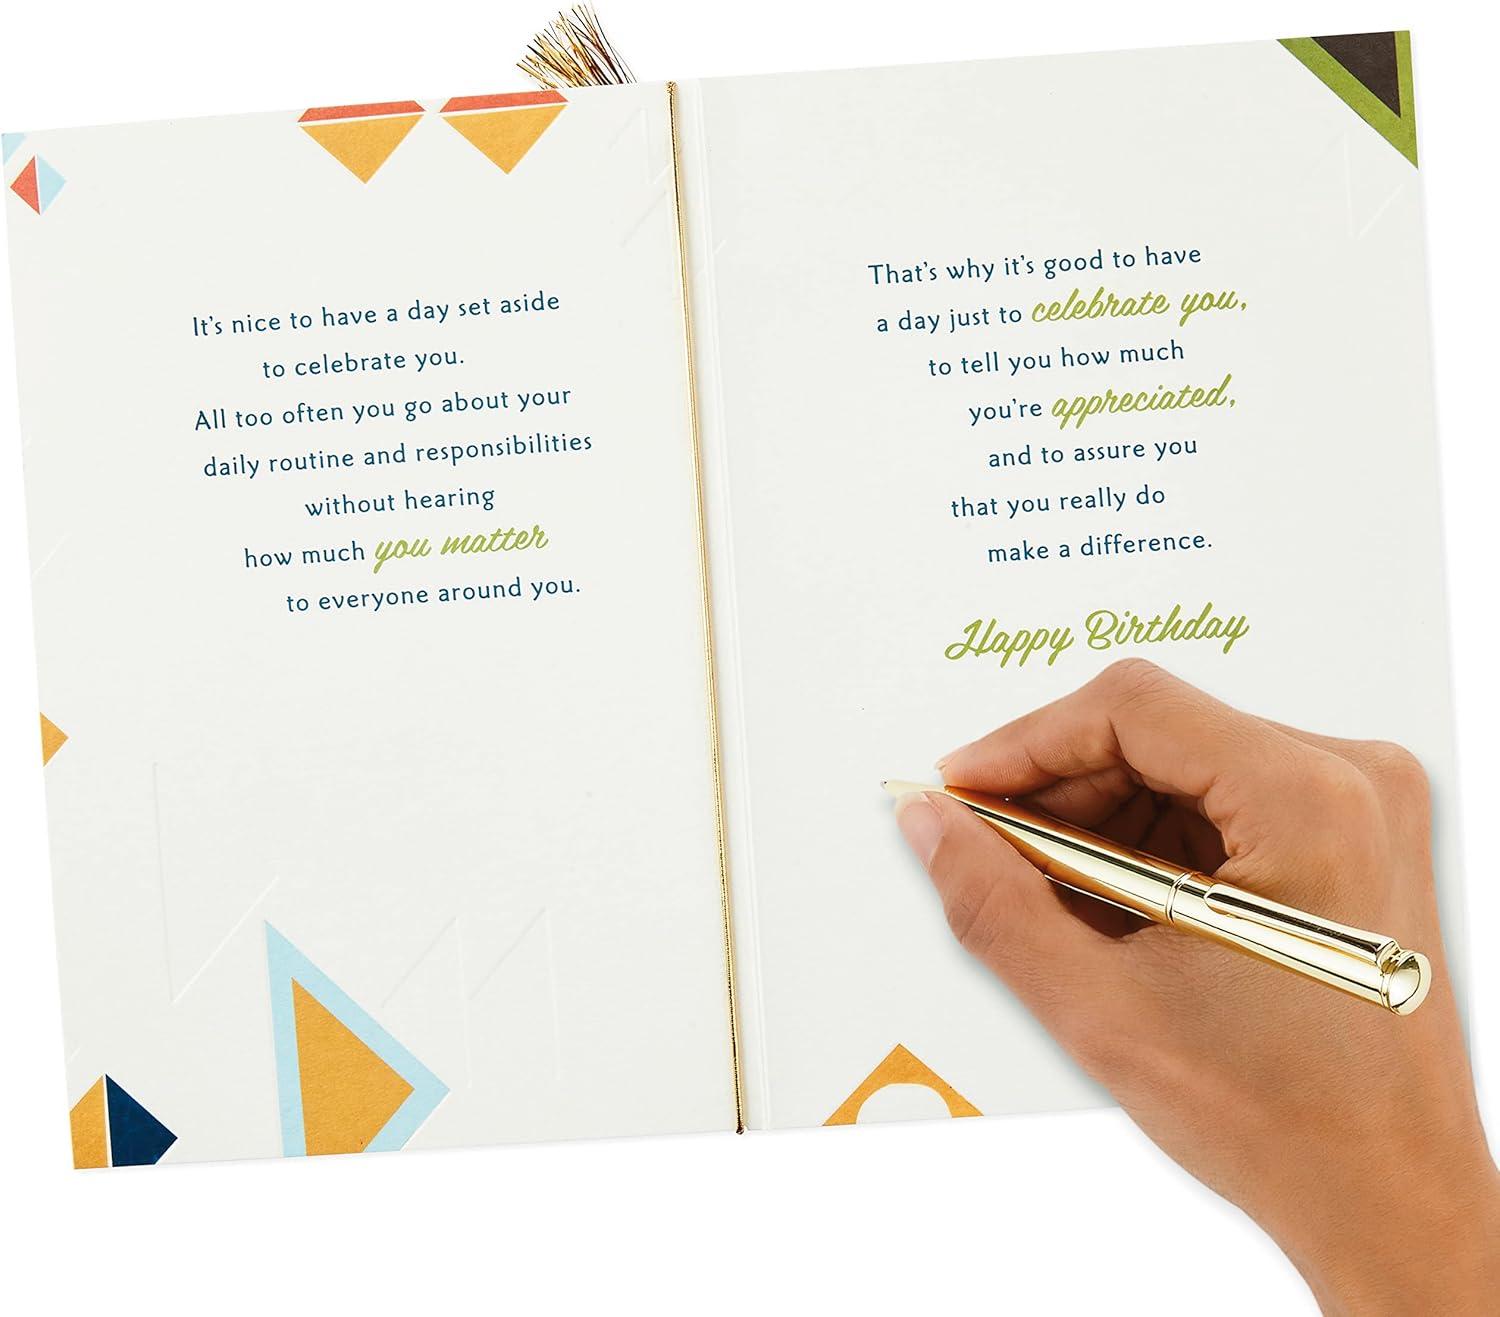 It's nice to have a day set aside
to celebrate you.
All too often you go about your
daily routine and responsibilities
without hearing
how much you matter
to everyone around you.
That's why it's good to have
a day just to celebrate you,
to tell you how much
you're appreciated,
and to assure you
that you really do
make a difference.
Happy Birthday